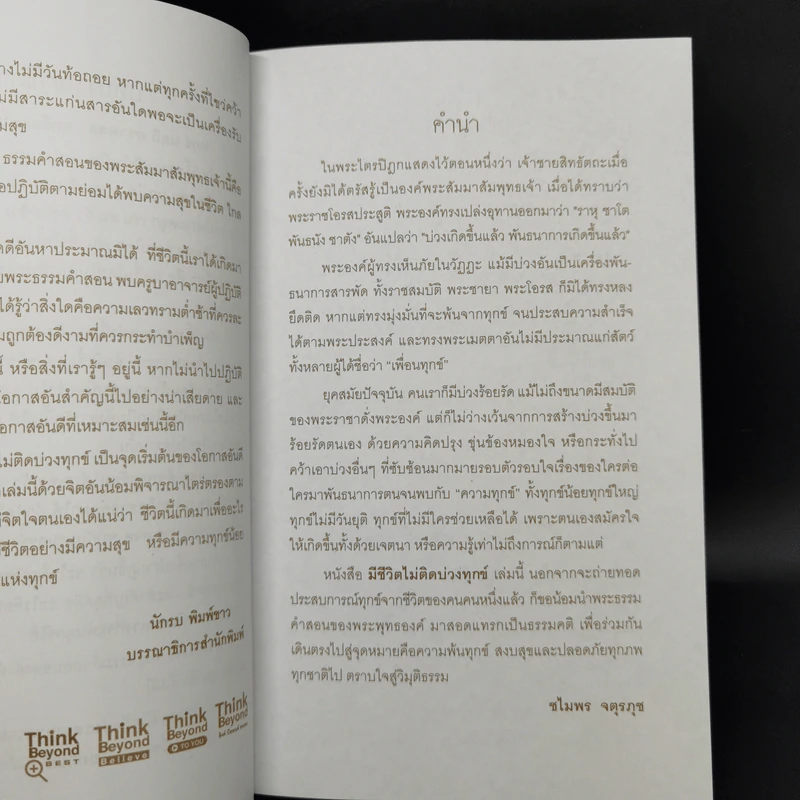 างไม่มีวันท้อถอย หากแต่ทุกครั้งที่ไขว่คว้า
ม่มีสาระแก่นสารอันใดพอจะเป็นเครื่องรับ
มสุข
ธรรมคำสอนของพระสัมมาสัมพุทธเจ้านี้คือ
อปฏิบัติตามย่อมได้พบความสุขในชีวิต ไกล
ดดีอันหาประมาณมิได้ ที่ชีวิตนี้เราได้เกิดมา
บพระธรรมคำสอน พบครูบาอาจารย์ผู้ปฏิบัติ
ได้รู้ว่าสิ่งใดคือความเลวทรามต่ำช้าที่ควรละ
มถูกต้องดีงามที่ควรกระทำบำเพ็ญ
นี้ หรือสิ่งที่เรารู้ๆ อยู่นี้ หากไม่นำไปปฏิบัติ
โอกาสอันสำคัญนี้ไปอย่างน่าเสียดาย และ
อกาสอันดีที่เหมาะสมเช่นนี้อีก
ม่ติดบ่วงทุกข์ เป็นจุดเริ่มต้นของโอกาสอันดี
อเล่มนี้ด้วยจิตอันน้อมพิจารณาไตร่ตรองตาม
จิตใจตนเองได้แน่ว่า ชีวิตนี้เกิดมาเพื่ออะไร
ชีวิตอย่างมีความสุข หรือมีความทุกข์น้อย
แห่งทุกข์
นักรบ พิมพ์ขาว
บรรณาธิการสำนักพิมพ์
Think Beyond BEST
Think Beyond Believe
Think Beyond TO YOU
Think Beyond
คำนำ
ในพระไตรปิฎกแสดงไว้ตอนหนึ่งว่า เจ้าชายสิทธัตถะเมื่อ
ครั้งยังมิได้ตรัสรู้เป็นองค์พระสัมมาสัมพุทธเจ้า เมื่อได้ทราบว่า
พระราชโอรสประสูติ พระองค์ทรงเปล่งอุทานออกมาว่า "ราหุ ชาโต
พันธนัง ชาตัง" อันแปลว่า "บ่วงเกิดขึ้นแล้ว พันธนาการเกิดขึ้นแล้ว"
พระองค์ผู้ทรงเห็นภัยในวัฏฏะ แม้มีบ่วงอันเป็นเครื่องพัน-
ธนาการสารพัด ทั้งราชสมบัติ พระชายา พระโอรส ก็มิได้ทรงหลง
ยึดติด หากแต่ทรงมุ่งมั่นที่จะพ้นจากทุกข์ จนประสบความสำเร็จ
ได้ตามพระประสงค์ และทรงพระเมตตาอันไม่มีประมาณแก่สัตว์
ทั้งหลายผู้ได้ชื่อว่า "เพื่อนทุกข์"
ยุคสมัยปัจจุบัน คนเราก็มีบ่วงร้อยรัด แม้ไม่ถึงขนาดมีสมบัติ
ของพระราชาดั่งพระองค์ แต่ก็ไม่ว่างเว้นจากการสร้างบ่วงขึ้นมา
ร้อยรัดตนเอง ด้วยความคิดปรุง ขุ่นข้องหมองใจ หรือกระทั่งไป
คว้าเอาบ่วงอื่นๆ ที่ซับซ้อนมากมายรอบตัวรอบใจเรื่องของใครต่อ
ใครมาพันธนาการตนจนพบกับ "ความทุกข์" ทั้งทุกข์น้อยทุกข์ใหญ่
ทุกข์ไม่มีวันยุติ ทุกข์ที่ไม่มีใครช่วยเหลือได้ เพราะตนเองสมัครใจ
ให้เกิดขึ้นทั้งด้วยเจตนา หรือความรู้เท่าไม่ถึงการณ์ก็ตามแต่
หนังสือ มีชีวิตไม่ติดบ่วงทุกข์ เล่มนี้ นอกจากจะถ่ายทอด
ประสบการณ์ทุกข์จากชีวิตของคนคนหนึ่งแล้ว ก็ขอน้อมนำพระธรรม
คำสอนของพระพุทธองค์ มาสอดแทรกเป็นธรรมคติ เพื่อร่วมกัน
เดินตรงไปสู่จุดหมายคือความพ้นทุกข์ สงบสุขและปลอดภัยทุกภพ
ทุกชาติไป ตราบใจสู่วิมุติธรรม
ชไมพร จตุรภุช